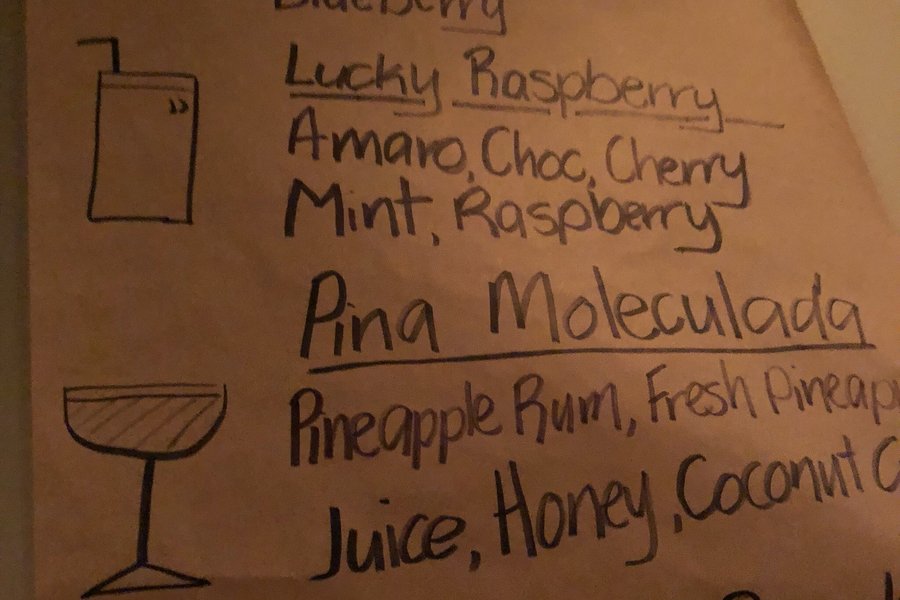 Blueberry
Lucky Raspberry
Amaro, Choc, Cherry
Mint, Raspberry
Pina Moleculada
Pineapple Rum, Fresh Pineap
Juice, Honey, Coconut C